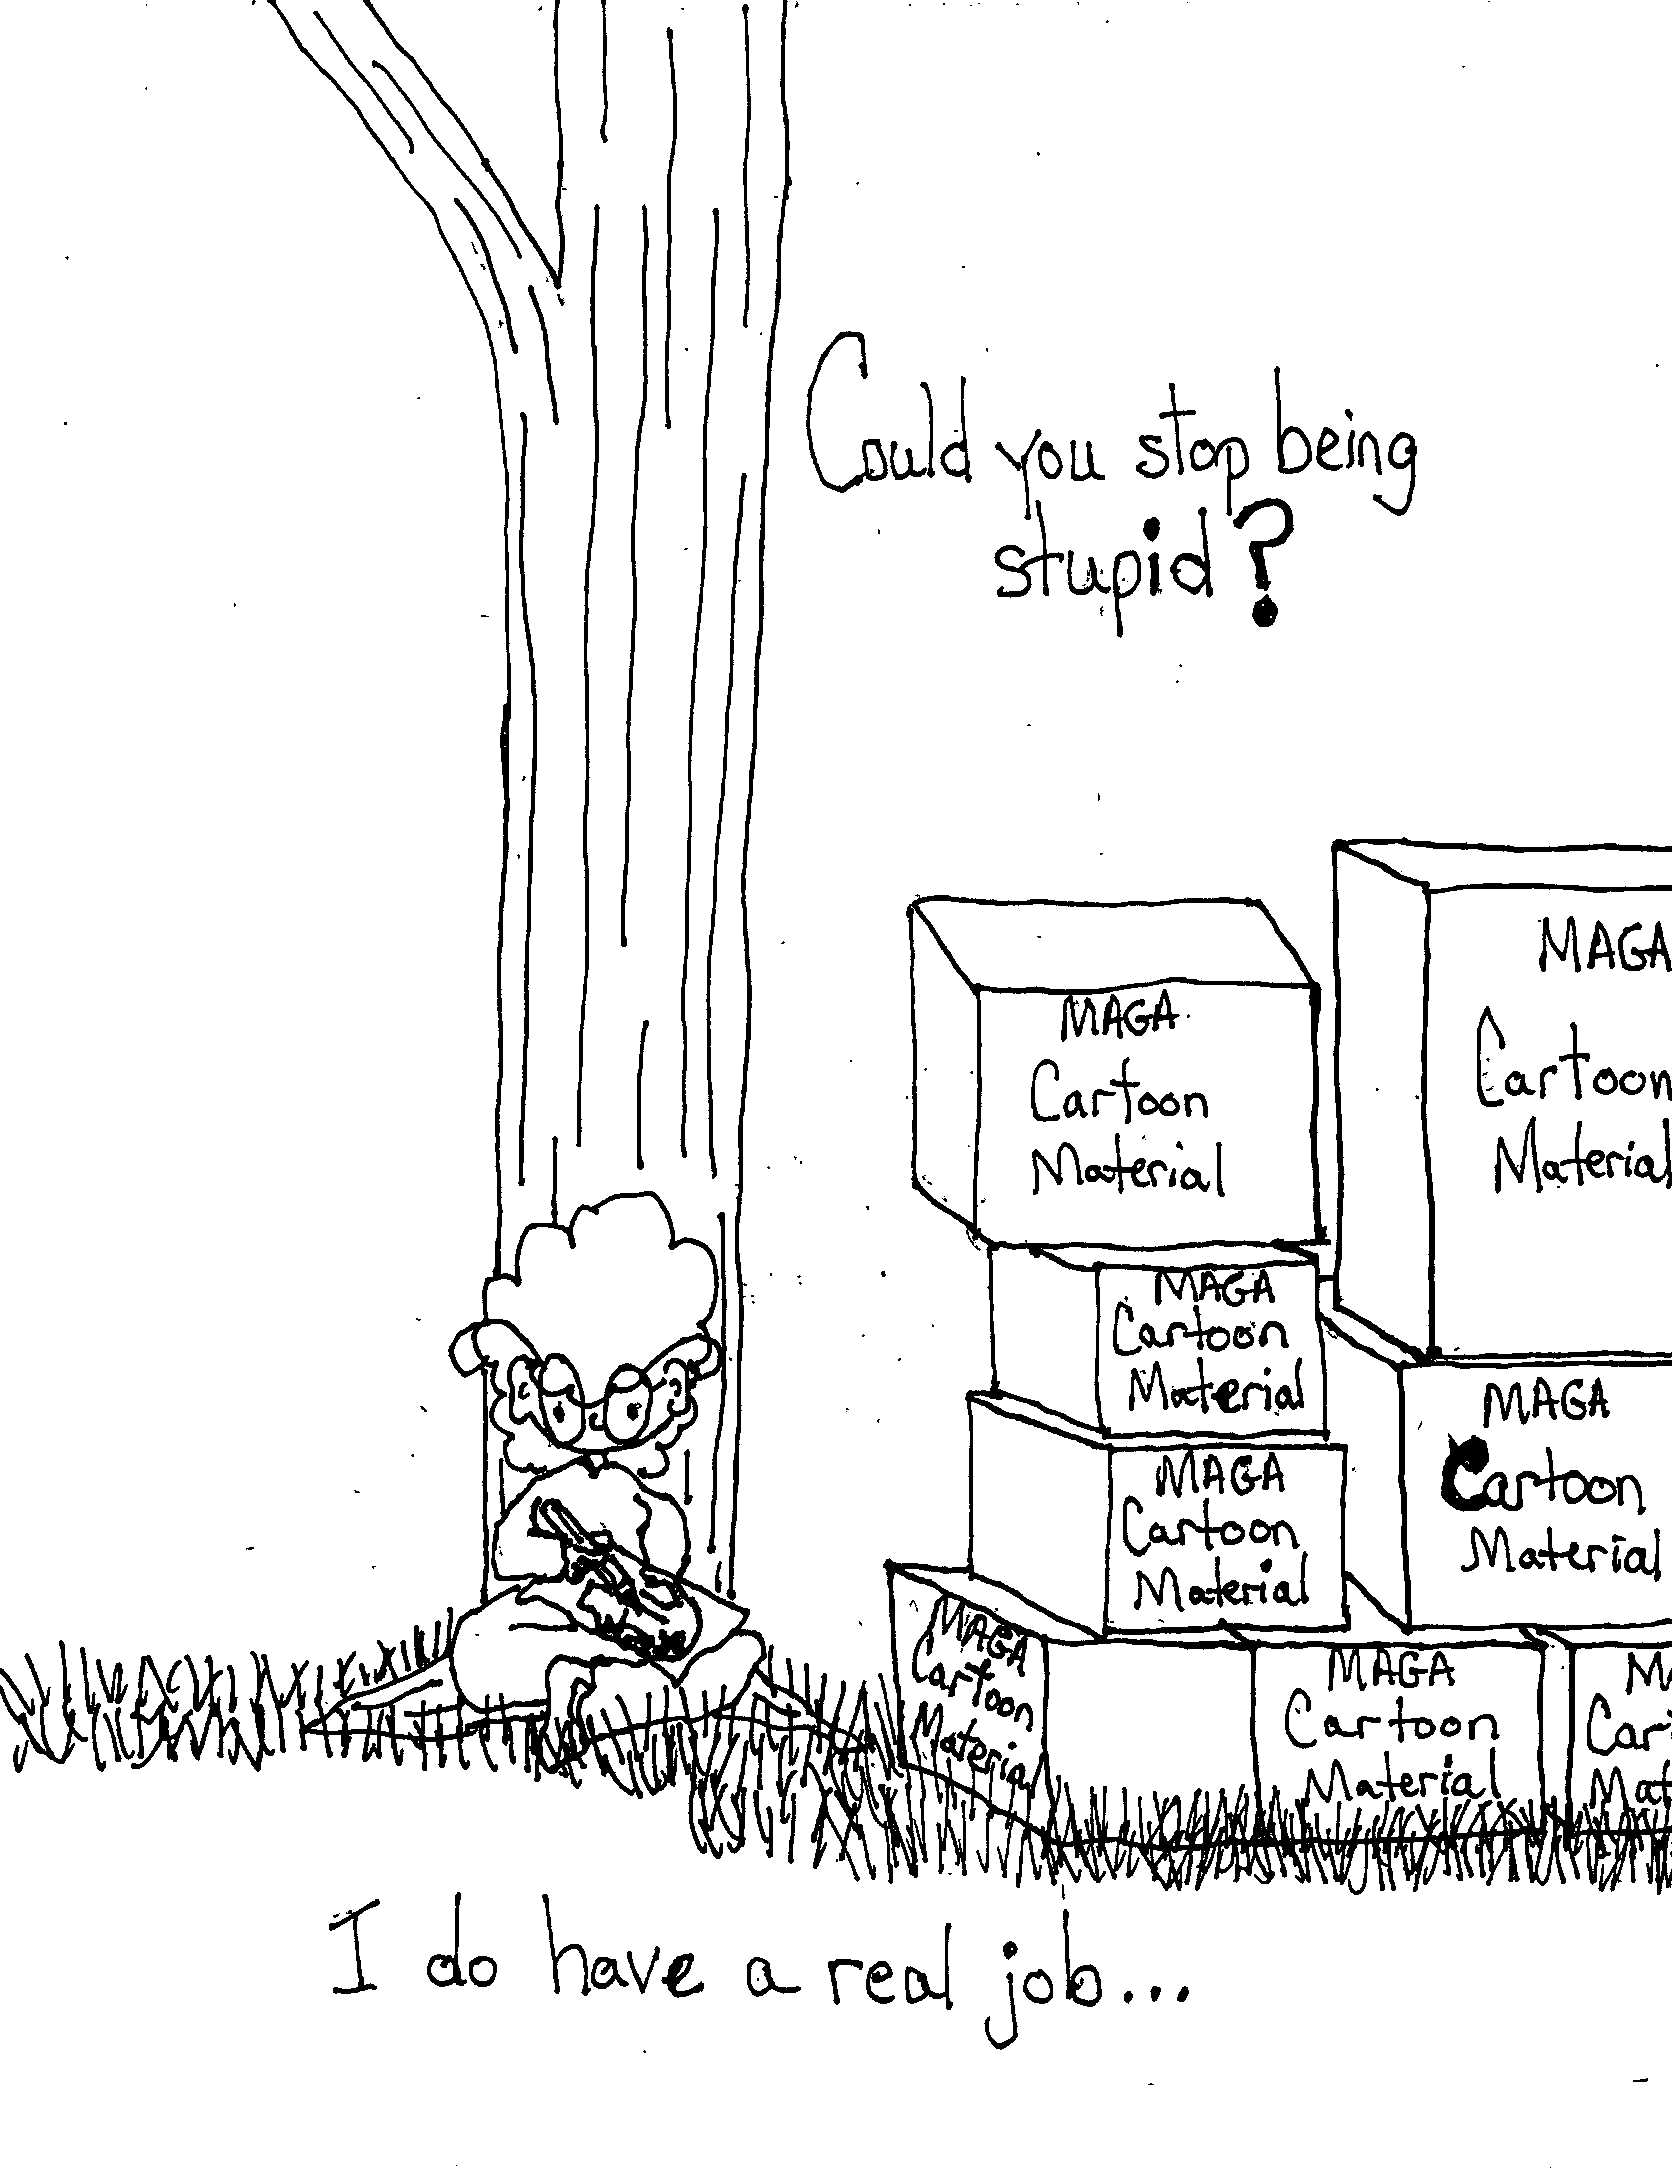 Could you stop being
stupid?
MAGA
Cartoon
Material
MAGA
Cartoon
Material
MAGA
Cartoon
Material
MAGA
Cartoon
Material
MAGA
Cartoon
Material
MAGA
Cartoon
Material
MAGA
Cartoon
Material
I do have a real job...